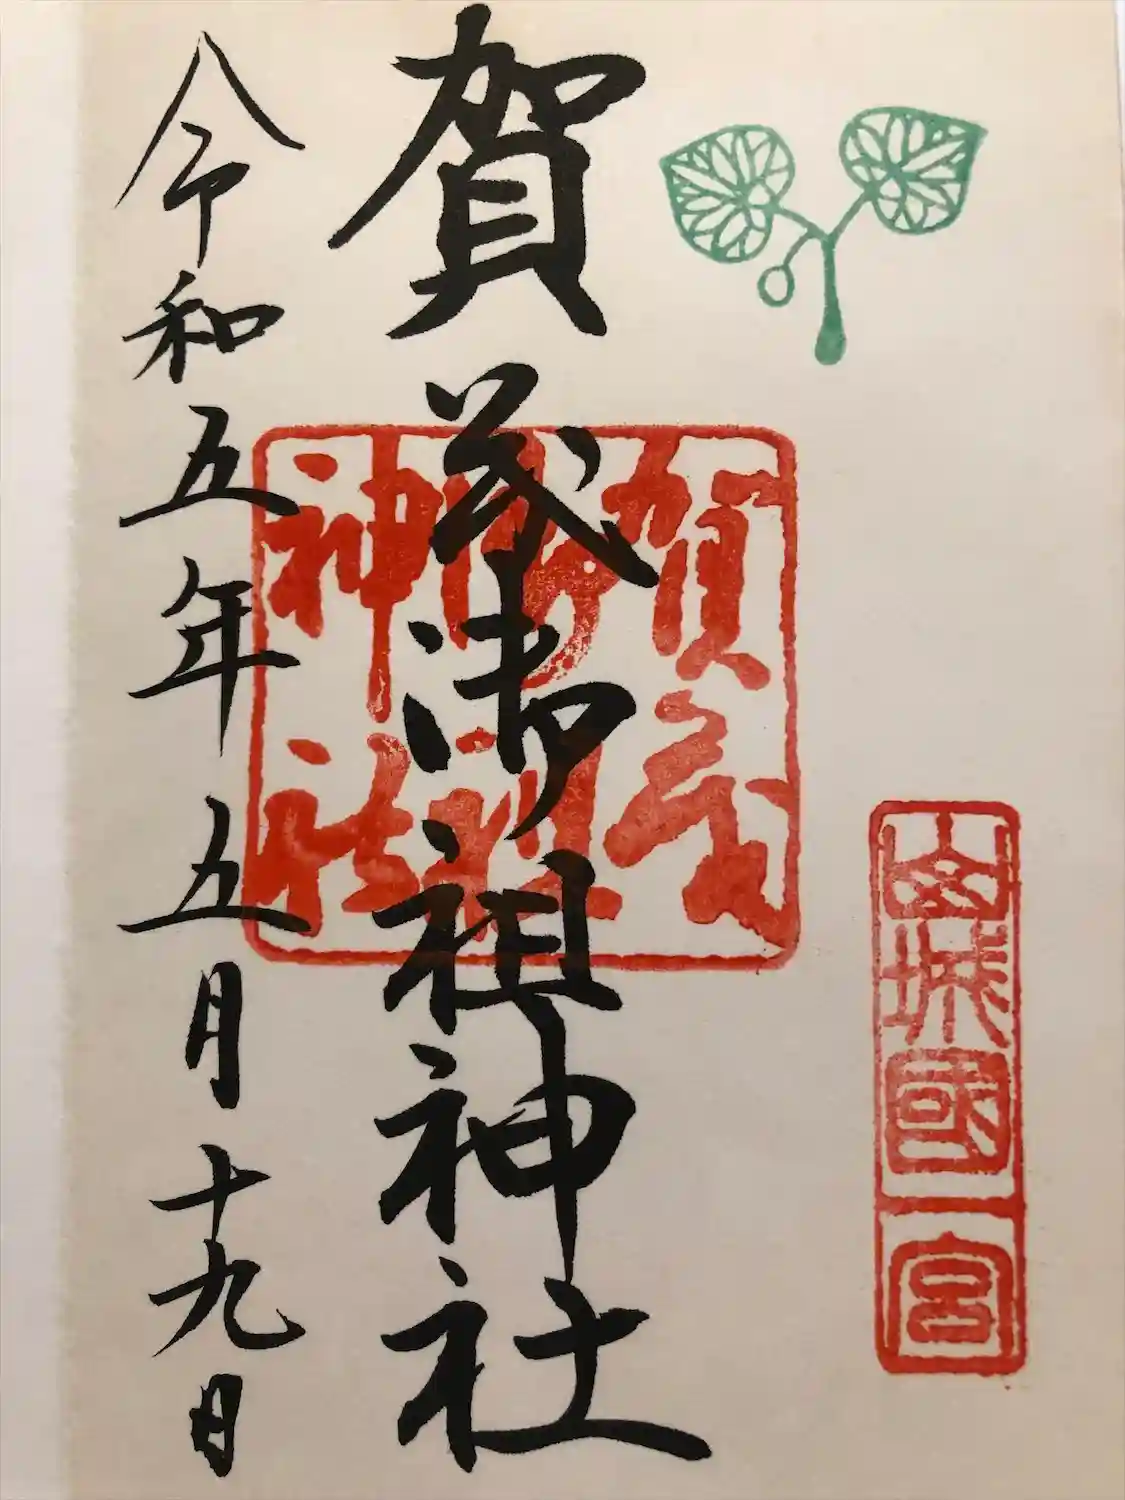 山城國一宮
賀茂御祖神社
賀茂
御祖
神社
令和五年五月十九日